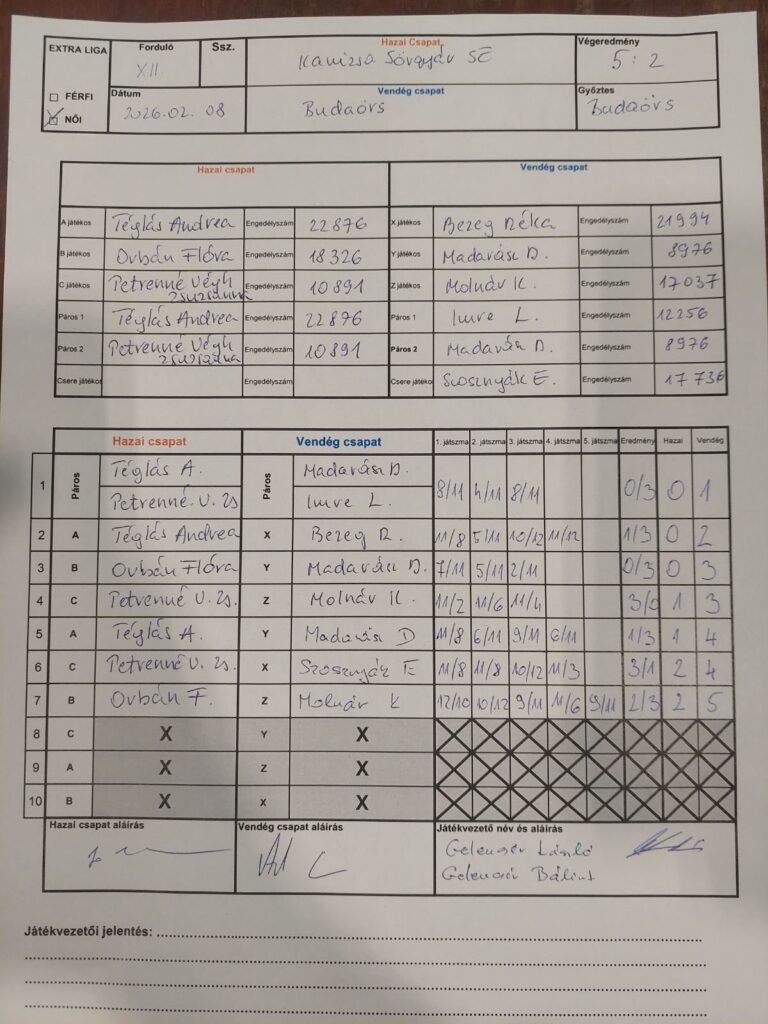 EXTRA LIGA Forduló Ssz. Hazai Csapat Végeredmény
XII Kanizsa Sörgyár SE 5 : 2
FÉRFI Dátum Vendég csapat Győztes
NŐI 2026.02. 08 Budaörs Budaörs
Hazai csapat Vendég csapat
A játékos Téglás Andrea Engedélyszám 22876 X játékos Bezeg Réka Engedélyszám 21994
B játékos Orbán Flóra Engedélyszám 18326 Y játékos Madarász D. Engedélyszám 8976
C játékos Petrenné Végh Zsuzsanna Engedélyszám 10891 Z játékos Molnár K. Engedélyszám 17037
Páros 1 Téglás Andrea Engedélyszám 22876 Páros 1 Imre L. Engedélyszám 12256
Páros 2 Petrenné Végh Zsuzsanna Engedélyszám 10891 Páros 2 Madarász D. Engedélyszám 8976
Csere játékos Engedélyszám Csere játékos Szosznyák E. Engedélyszám 17736
Hazai csapat Vendég csapat 1. játszma 2. játszma 3. játszma 4. játszma 5. játszma Eredmény Hazai Vendég
1 Páros Téglás A. Páros Madarász D. 8/11 4/11 8/11 0/3 0 1
Petrenné V. Zs Imre L.
2 A Téglás Andrea X Bezeg R. 11/8 5/11 10/12 11/12 1/3 0 2
3 B Orbán Flóra Y Madarász D. 7/11 5/11 2/11 0/3 0 3
4 C Petrenné V. Zs. Z Molnár K. 11/2 11/6 11/4 3/0 1 3
5 A Téglás A. Y Madarász D 11/8 6/11 9/11 6/11 1/3 1 4
6 C Petrenné V. Zs. X Szosznyák E 11/8 11/8 10/12 11/3 3/1 2 4
7 B Orbán F. Z Molnár K 12/10 10/12 9/11 11/6 9/11 2/3 2 5
8 C X Y X
9 A X Z X
10 B X X X
Hazai csapat aláírás Vendég csapat aláírás Játékvezető név és aláírás
Gelencsér László
Gelencsér Bálint
Játékvezetői jelentés: